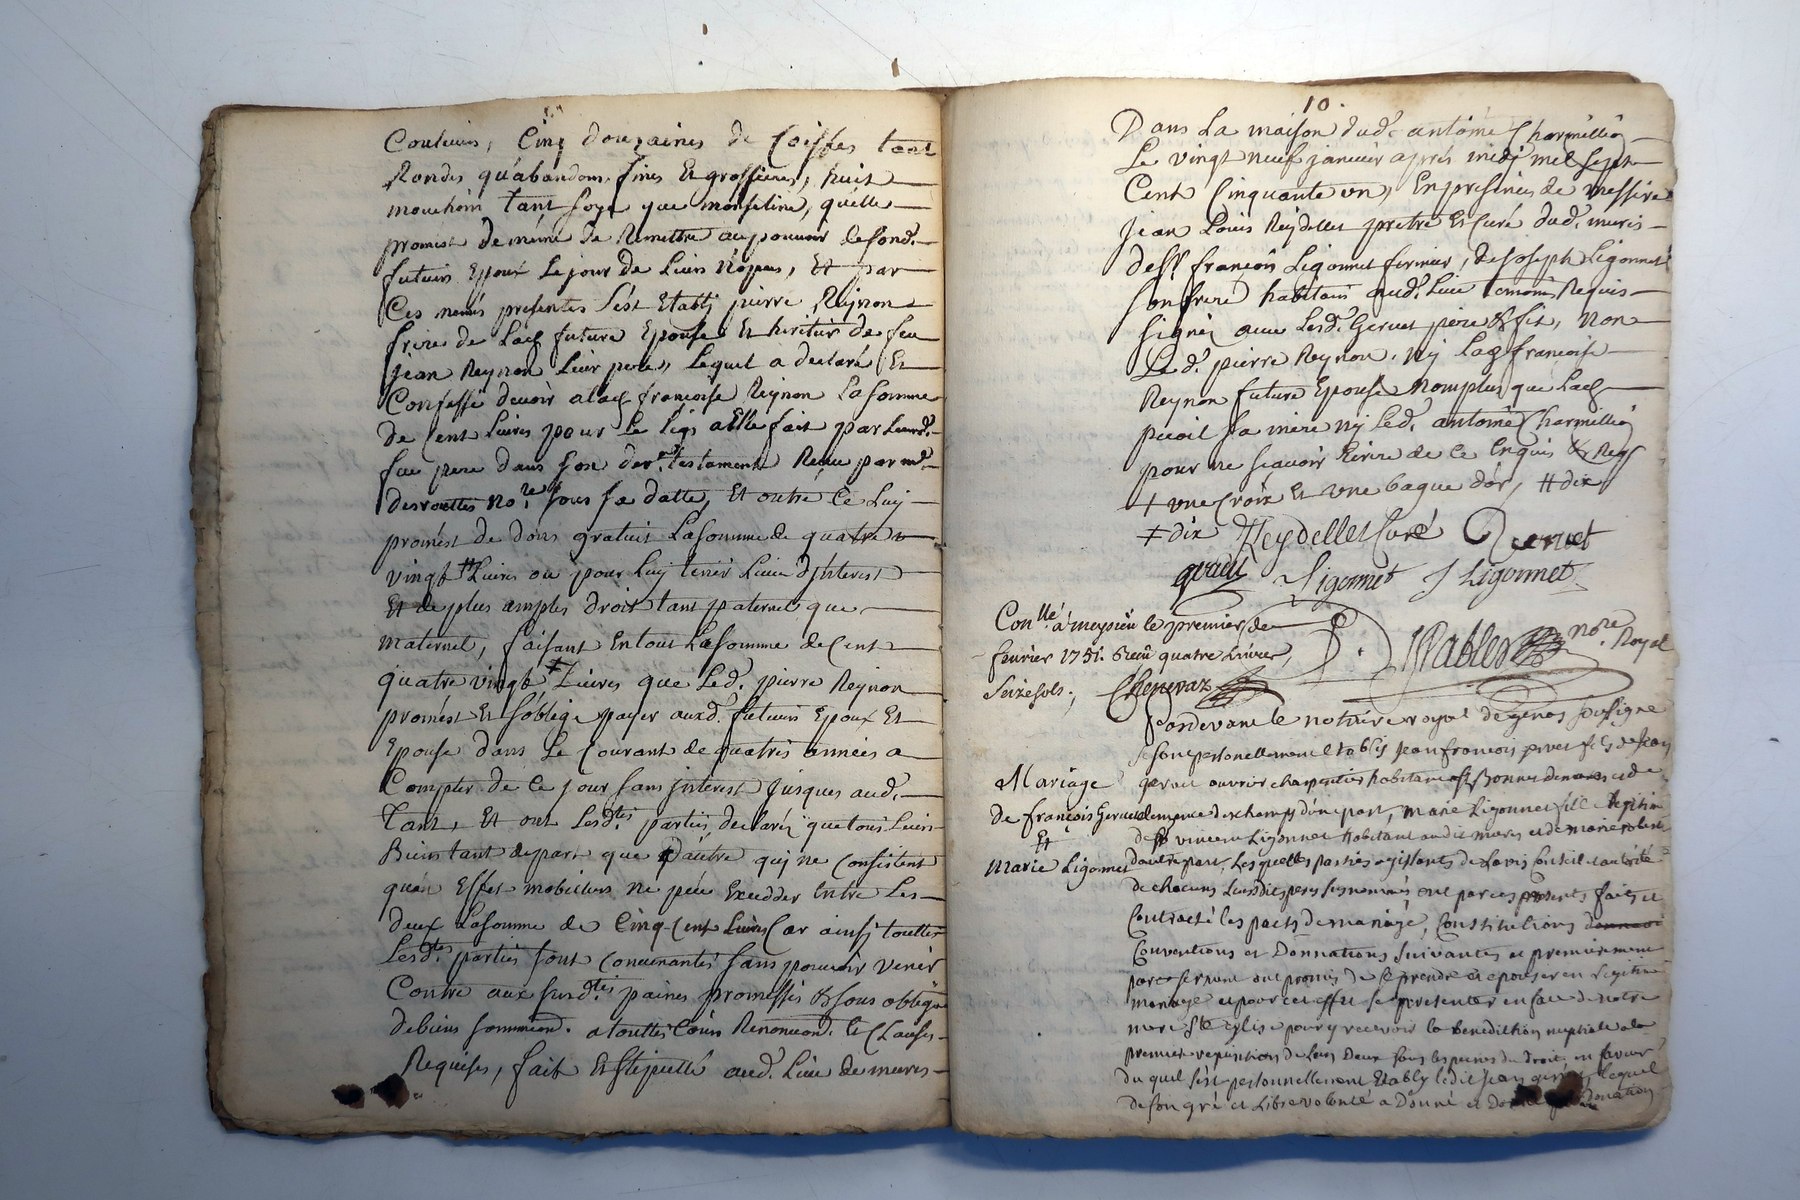 Couleurs, Cinq douzaines de Coiffes tant
Rondes qu'abandons fines Et grossieres, huit
mouchoirs tant soye que mousseline, quelle
promest de même de Remettre au pouvoir desond.
futeur Epoux Le jour de Leurs Nopces, Et par
Ces mêmes presentes s'est Etablj pierre Reynon
frere de Lad. future Epouse Et heritier de feu
jean Reynon Leur pere, Lequel a declaré Et
Confessé devoir a lad. francoise Reynon La somme
de Cent Livres pour Le Legs a Elle fait par Leurd.
feu pere dans son der. testament Recu par me.
desrouttes no.re sous sa datte, Et outre Ce Luy
promést de dons gratuit La somme de quatre
vingt # Livres ou pour Luy tenir Lieu d'jnterest
Et de plus amples droits tant paternel que
maternel, faisant En tout La somme de Cent
quatre vingt ‡ Livres que Led. pierre Reynon
promést Et s'oblige payer auxd. futeurs Epoux Et
Epouse dans Le Courant de quatres années a
Compter de Ce jour sans jnterest jusques aud.
tant, Et ont Lesd.tes parties declaréz que tous Leurs
Biens tant de part que d'autre quj ne Consistent
qu'en Effets mobiliers ne peu Exedder Entre Les
deux La somme de Cinq Cent Livres Car ainsj touttes
Lesd.tes parties sont Convenantes sans pouvoir venir
Contre aux susd.tes paines promesses & sous obligõn
de biens sommiond. a touttes Cours Renonciond. Et Clauses
Requises, fait Et stipullé aud. Lieu de meures
10.
Dans La maison dud. antoine Charmillion
Le vingt neuf janvier aprés midj mil sept
Cent Cinquante un, En presences de messire
jean Louis Reydellet pretre Et Curé dud. meures
de sr. françois Ligonnet fermier, de joseph Ligonnet
son frere habitans aud. Lieu temoins Requis
signéz avec Lesd. Gervet pere & fils, non
Led. pierre Reynon, nj Lad. francoise
Reynon future Epouse non plus que Lad.
sa mere nj Led. antoine Charmillion
pour ne scavoir Ecrire de Ce Enquis & Req.
+ une Croix Et une bague d'or, # dix
‡ dix Reydellet Curé Gervet
Ligonnet J Ligonnet
Con.llé a meysieu le premier de
fevrier 1751. Recu quatre Livres,
Seize sols. Chenevaz
Pables no.re Royal
Pardevant le nottaire royal de genas soussigné
se sont personellement etablis Jean francois gervet fils de Jean
gervet ouvrier charpentier habitant
d'une part, Marie Ligonnet fille legitime
de sr. vincent Ligonnet habitant audit mures et de marie
d'autre part, Lesquelles parties agissants de Lavis Conseil et authorité
de chacuns Leursdits peres susnommés ont par ces presentes faits et
Contracté les pacts de mariage, Constitutions
Conventions et Donnations suivantes et premierement
parce servant ont promis de se prendre et epouser en Legitime
mariage et pour cet effet se presenter en face de notre
mere Ste Eglise pour y recevoir la benediction nuptiale a la
premiere requisition de L'un Deux sous les peines du droit, en faveur
duquel s'est personnellement Etably ledit Jean gervet, lequel
de son gré et Libre volonté a Donné et Donne par Donation
Mariage
De françois Gervet
Et
Marie Ligonnet